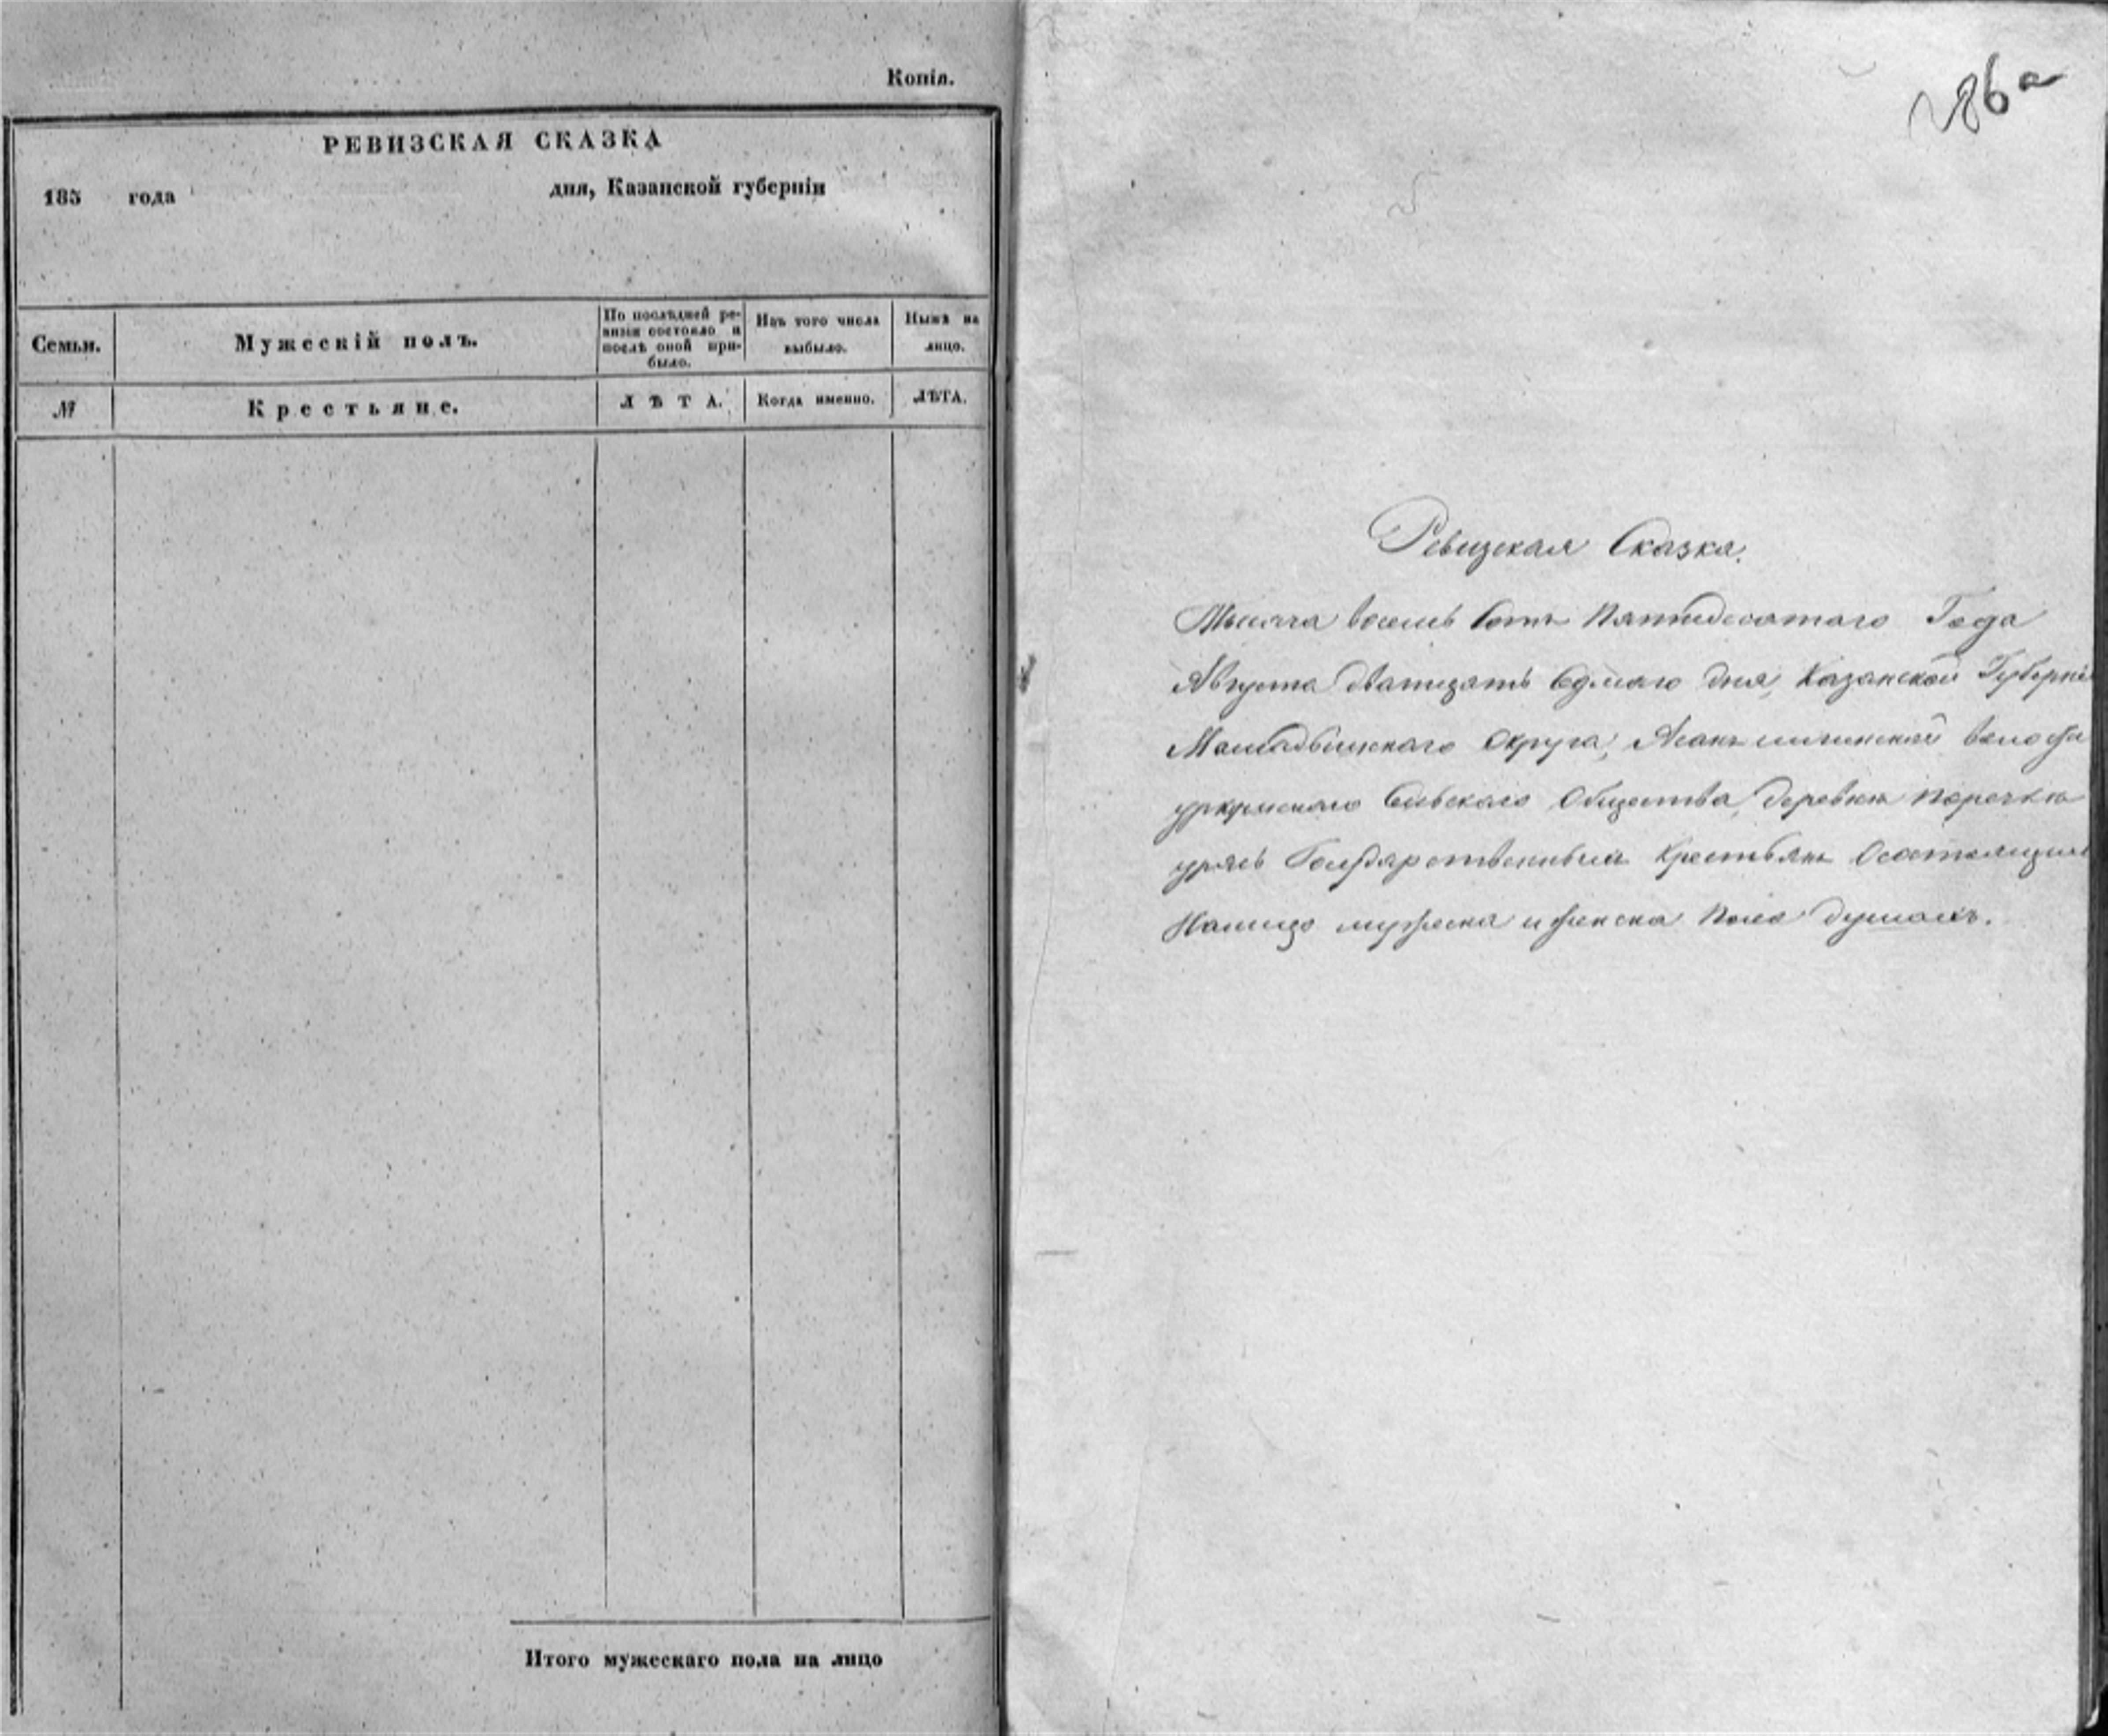 Копія.
РЕВИЗСКАЯ СКАЗКА
185 года дня, Казанской губерніи
Семьи.
Мужескій полъ.
По послѣдней ре-
визіи состояло и
послѣ оной при-
было.
Изъ того числа
выбыло.
Нынѣ на
лицо.
№
Крестьяне.
ЛѢТА.
Когда именно.
ЛѢТА.
Итого мужескаго пола на лицо
286а
Ревизская Сказка.
Тысяча восемь сотъ Пятидесятаго Года
Августа дватцать седмаго дня, Казанской Губерніи
Мамадышскаго Округа, волости
Сельскаго Общества, деревни
Государственныхъ Крестьянъ О состоящихъ
Налицо мужеска и женска пола душахъ.